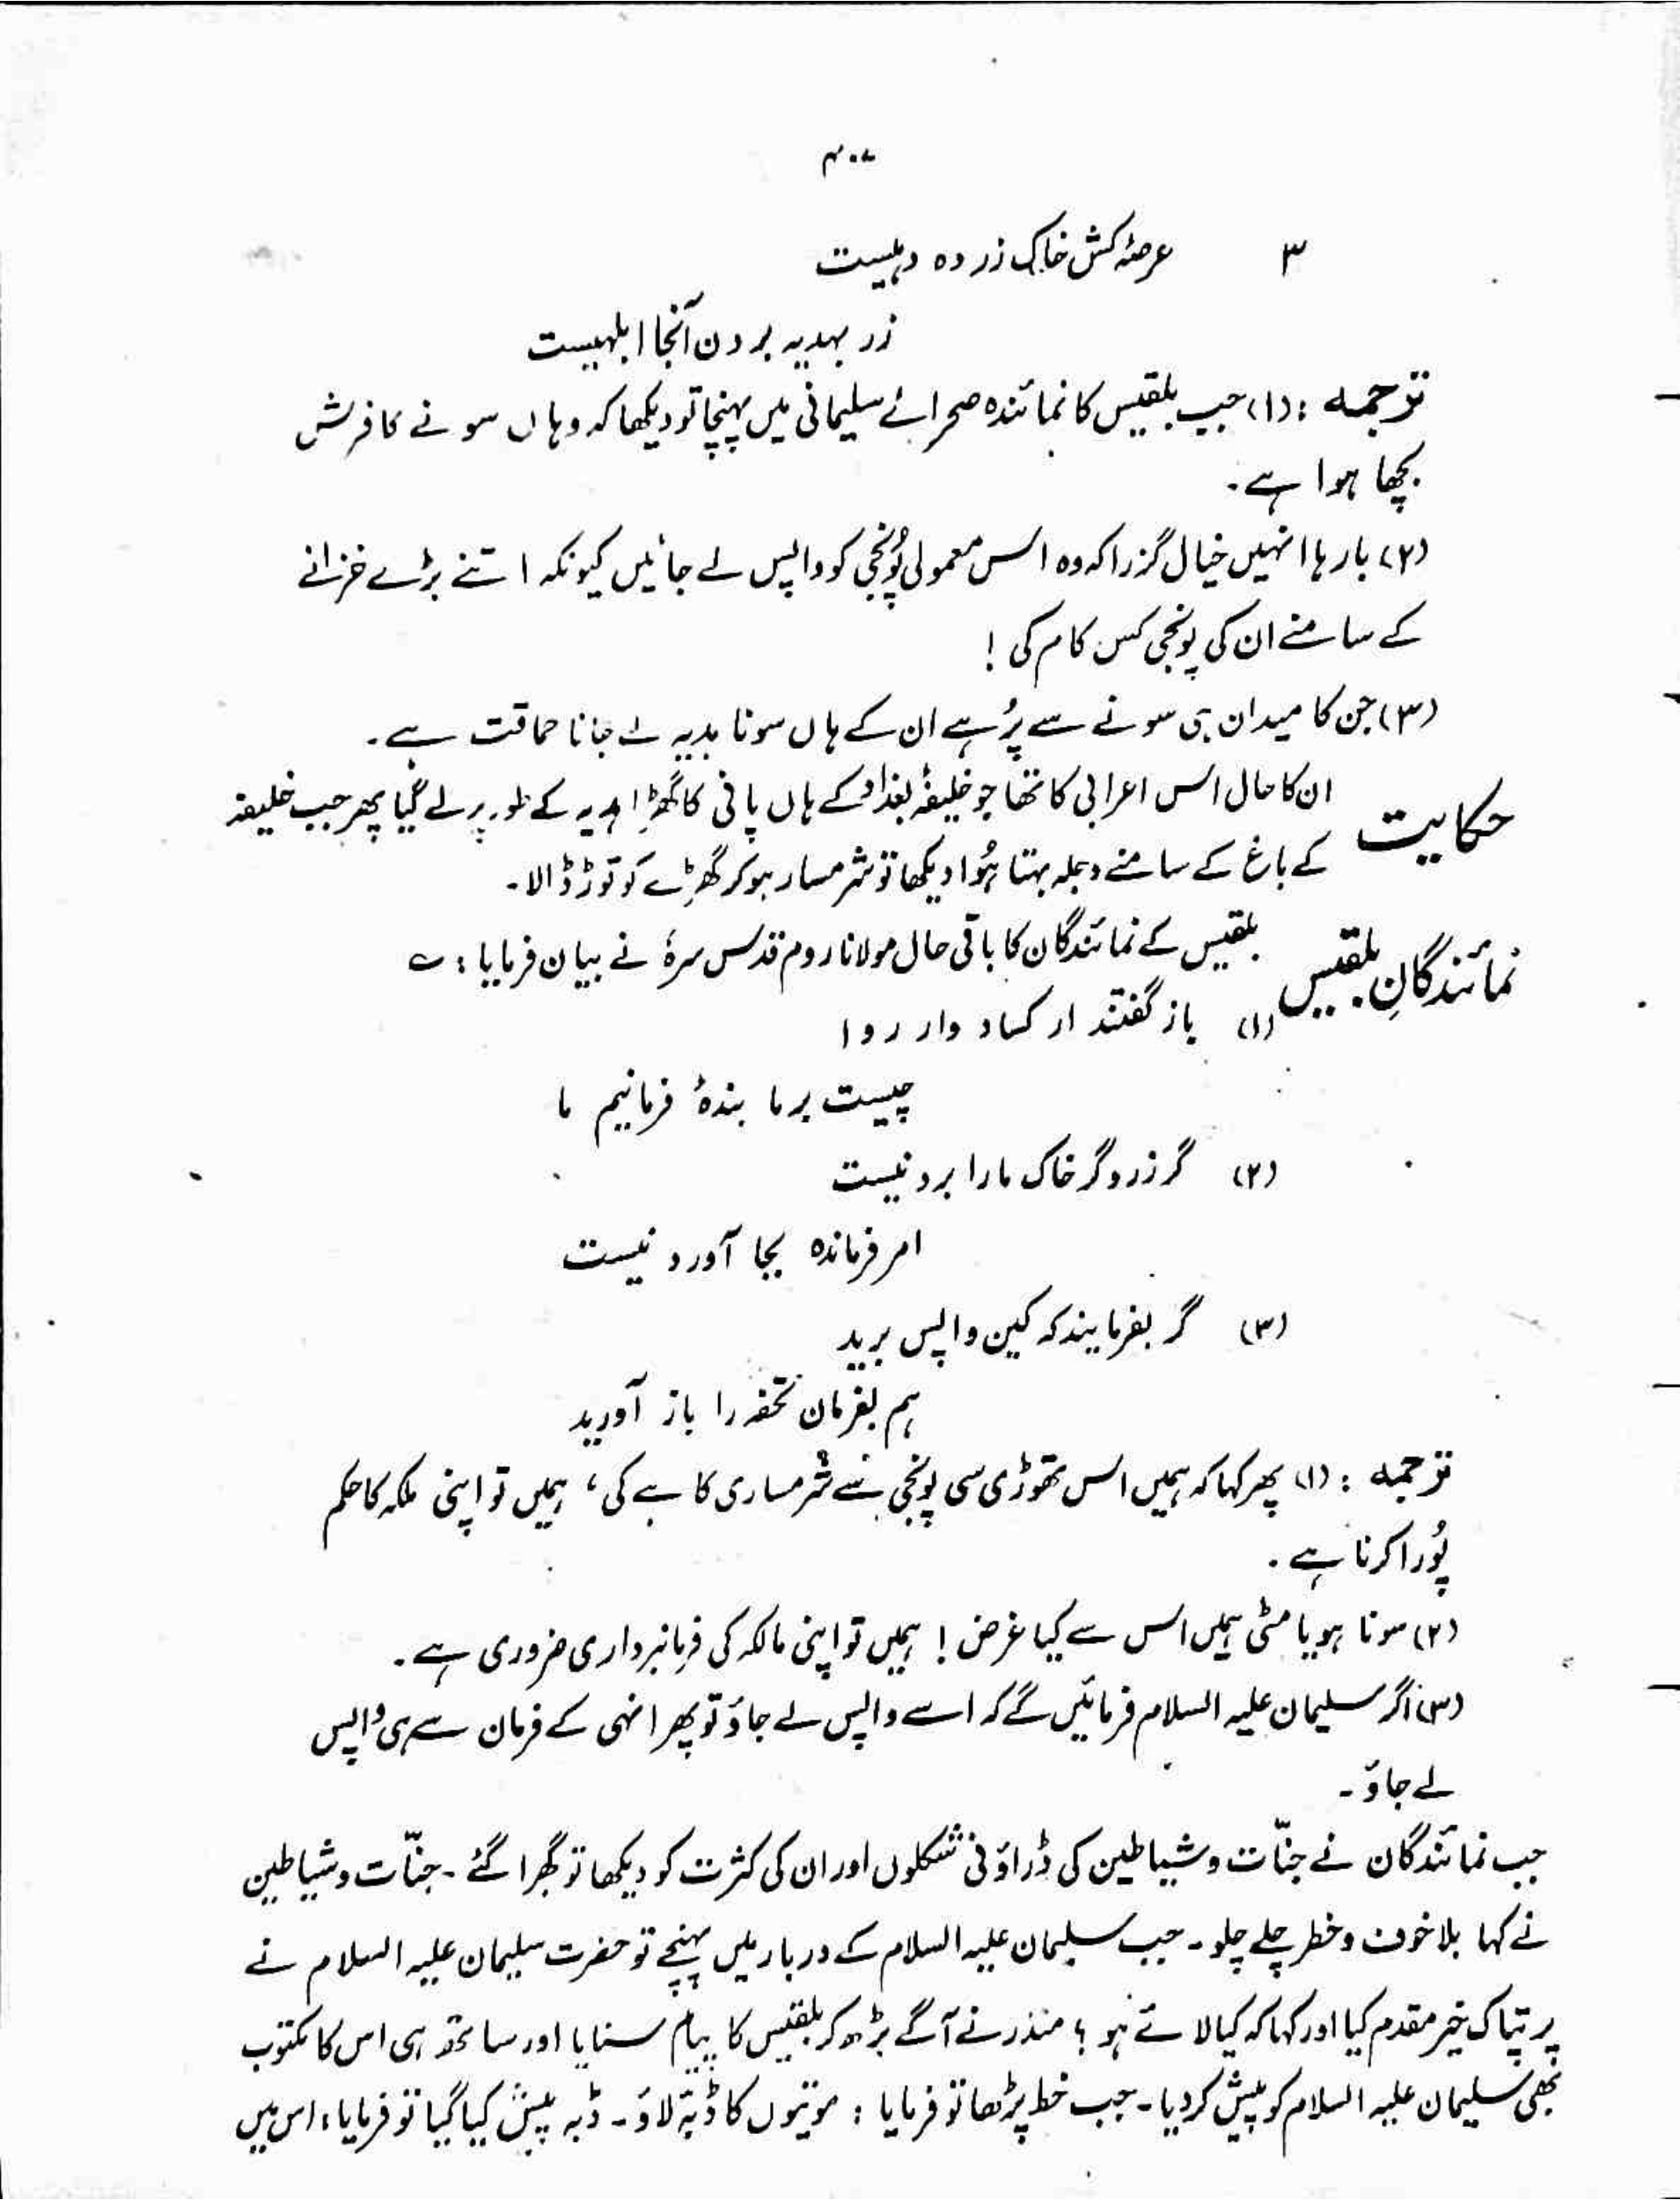 ۴۰۷
۳ عرصۂ کش خاک زر دہ دہلیست
زر بہدیہ بردن آنجا ابلہیست
ترجمہ : (۱) جب بلقیس کا نمائندہ صحرائے سلیمانی میں پہنچا تو دیکھا کہ وہاں سونے کا فرش
بچھا ہوا ہے ۔
(۲) بارہا انہیں خیال گزرا کہ وہ اس معمولی پُونجی کو واپس لے جائیں کیونکہ اتنے بڑے خزانے
کے سامنے ان کی پونجی کس کام کی !
(۳) جن کا میدان ہی سونے سے پُر ہے ان کے ہاں سونا ہدیہ لے جانا حماقت ہے ۔
حکایت ان کا حال اس اعرابی کا تھا جو خلیفۂ بغداد کے ہاں پانی کا گھڑا ہدیہ کے طور پر لے گیا پھر جب خلیفہ
کے باغ کے سامنے دجلہ بہتا ہُوا دیکھا تو شرمسار ہو کر گھڑے کو توڑ ڈالا ۔
نمائندگانِ بلقیس بلقیس کے نمائندگان کا باقی حال مولانا روم قدس سرہٗ نے بیان فرمایا : ؎
(۱) باز گفتند ار کساد وار روا
چیست بر ما بندۂ فرمانیم ما
(۲) گر زر و گر خاک مارا برد نیست
امر فرماندہ بجا آورد نیست
(۳) گر بفرمایند کہ کین واپس برید
ہم بفرمان تحفہ را باز آورید
ترجمہ : (۱) پھر کہا کہ ہمیں اس تھوڑی سی پونجی سے شرمساری کاہے کی ، ہمیں تو اپنی ملکہ کا حکم
پُورا کرنا ہے ۔
(۲) سونا ہو یا مٹی ہمیں اس سے کیا غرض ! ہمیں تو اپنی مالکہ کی فرمانبرداری ضروری ہے ۔
(۳) اگر سلیمان علیہ السلام فرمائیں گے کہ اسے واپس لے جاؤ تو پھر انہی کے فرمان سے ہی واپس
لے جاؤ ۔
جب نمائندگان نے جنّات و شیاطین کی ڈراؤنی شکلوں اور ان کی کثرت کو دیکھا تو گبھرا گئے ۔ جنّات و شیاطین
نے کہا بلا خوف و خطر چلے چلو ۔ جب سلیمان علیہ السلام کے دربار میں پہنچے تو حضرت سلیمان علیہ السلام نے
پر تپاک خیر مقدم کیا اور کہا کہ کیا لائے ہو ؟ منذر نے آگے بڑھ کر بلقیس کا پیام سنایا اور ساتھ ہی اس کا مکتوب
بھی سلیمان علیہ السلام کو پیش کر دیا ۔ جب خط پڑھا تو فرمایا : موتیوں کا ڈبّہ لاؤ ۔ ڈبہ پیش کیا گیا تو فرمایا ، اس میں